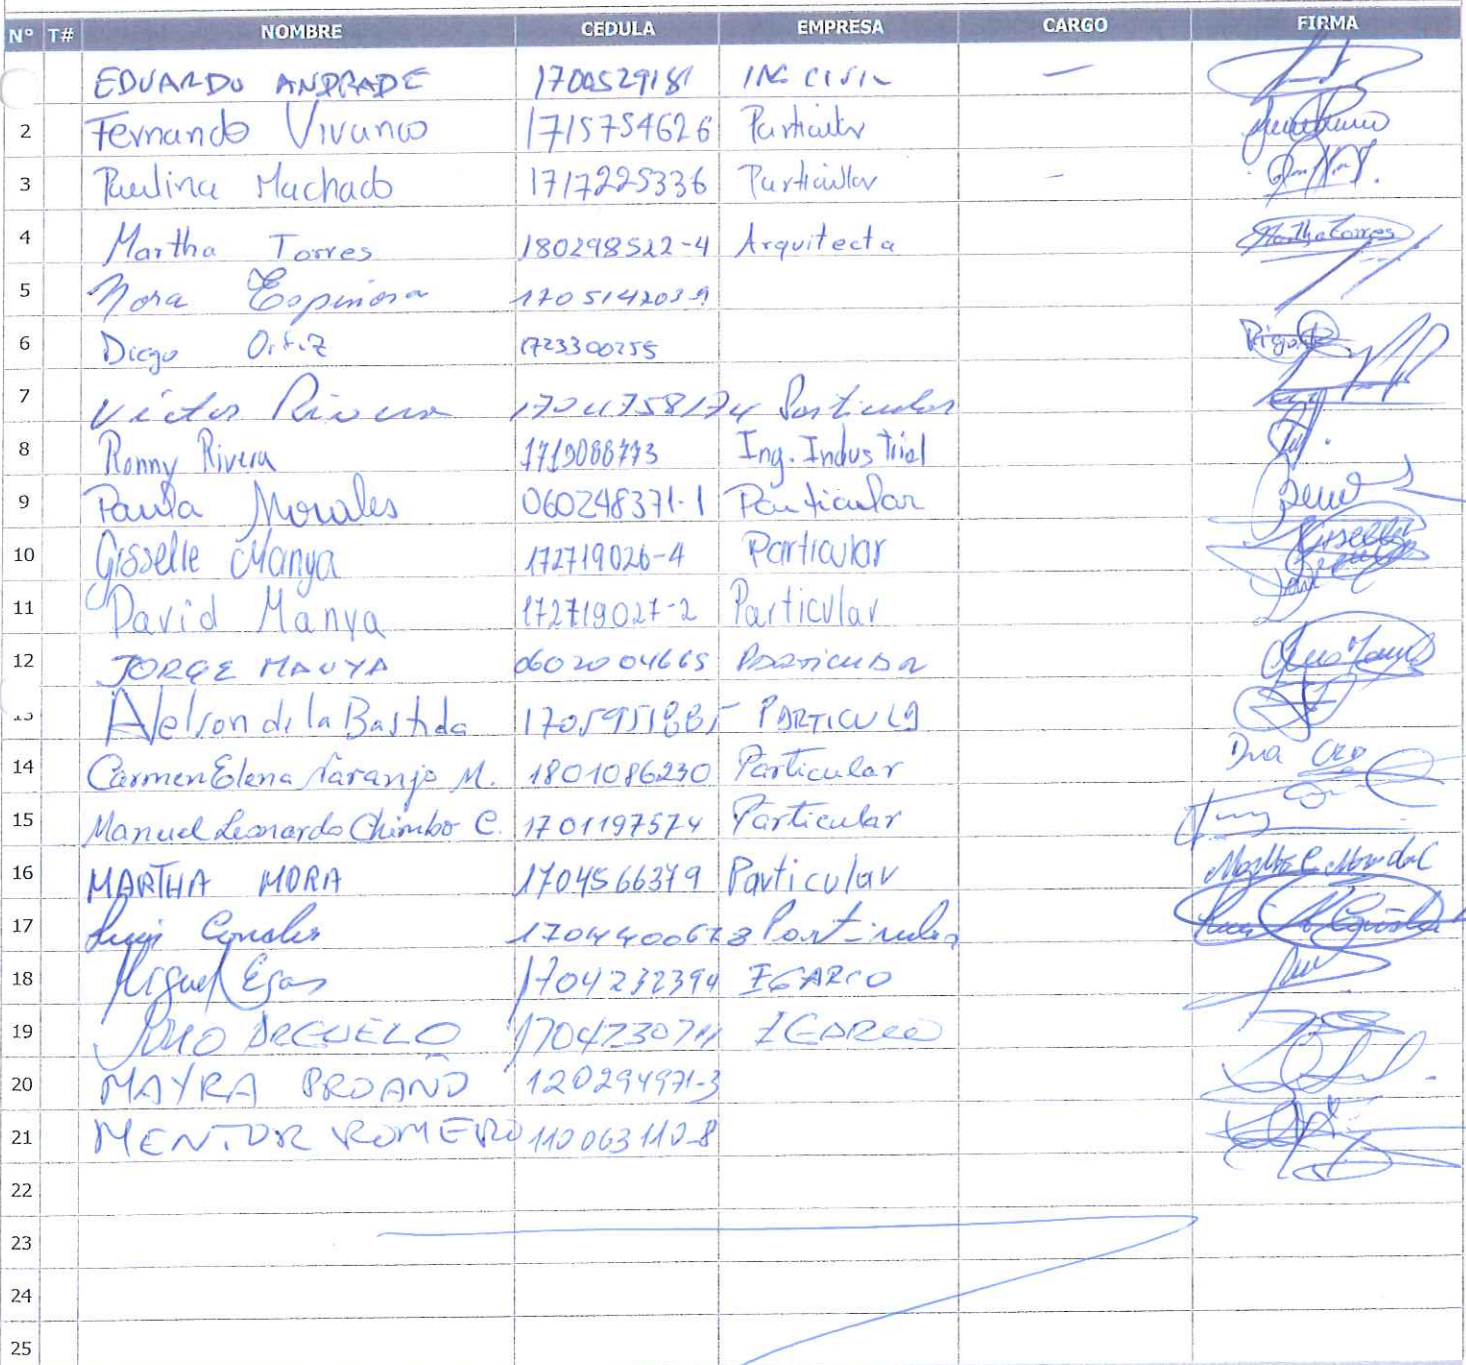 N° T# NOMBRE CEDULA EMPRESA CARGO FIRMA
EDUARDO ANDRADE 1700529181 ING CIVIL —
2 Fernando Vivanco 1715754626 Particular
3 Paulina Machado 1717225336 Particular –
4 Martha Torres 180298522-4 Arquitecta Martha Torres
5 Nora Espinosa 1705142039
6 Diego Ortiz 1723300255
7 Victor Rivera 1704758174 Particular
8 Ronny Rivera 1719088773 Ing. Industrial
9 Paula Morales 060248371-1 Particular
10 Gisselle Manya 172719026-4 Particular Gisselle
11 David Manya 172719027-2 Particular
12 JORGE MANYA 0602004665 PARTICULAR
13 Nelson de la Bastida PARTICULA
14 Carmen Elena Naranjo M. 1801086230 Particular
15 Manuel Leonardo Chimbo C. 1701197574 Particular
16 MARTHA MORA 1704566379 Particular
17 Luis 1704400673 Particular
18 Miguel Egas 1704232394 EGARCO
19 1704230711 EGARCO
20 MAYRA PROAÑO 120294971-3
21 MENTOR ROMERO 110063110-8
22
23
24
25